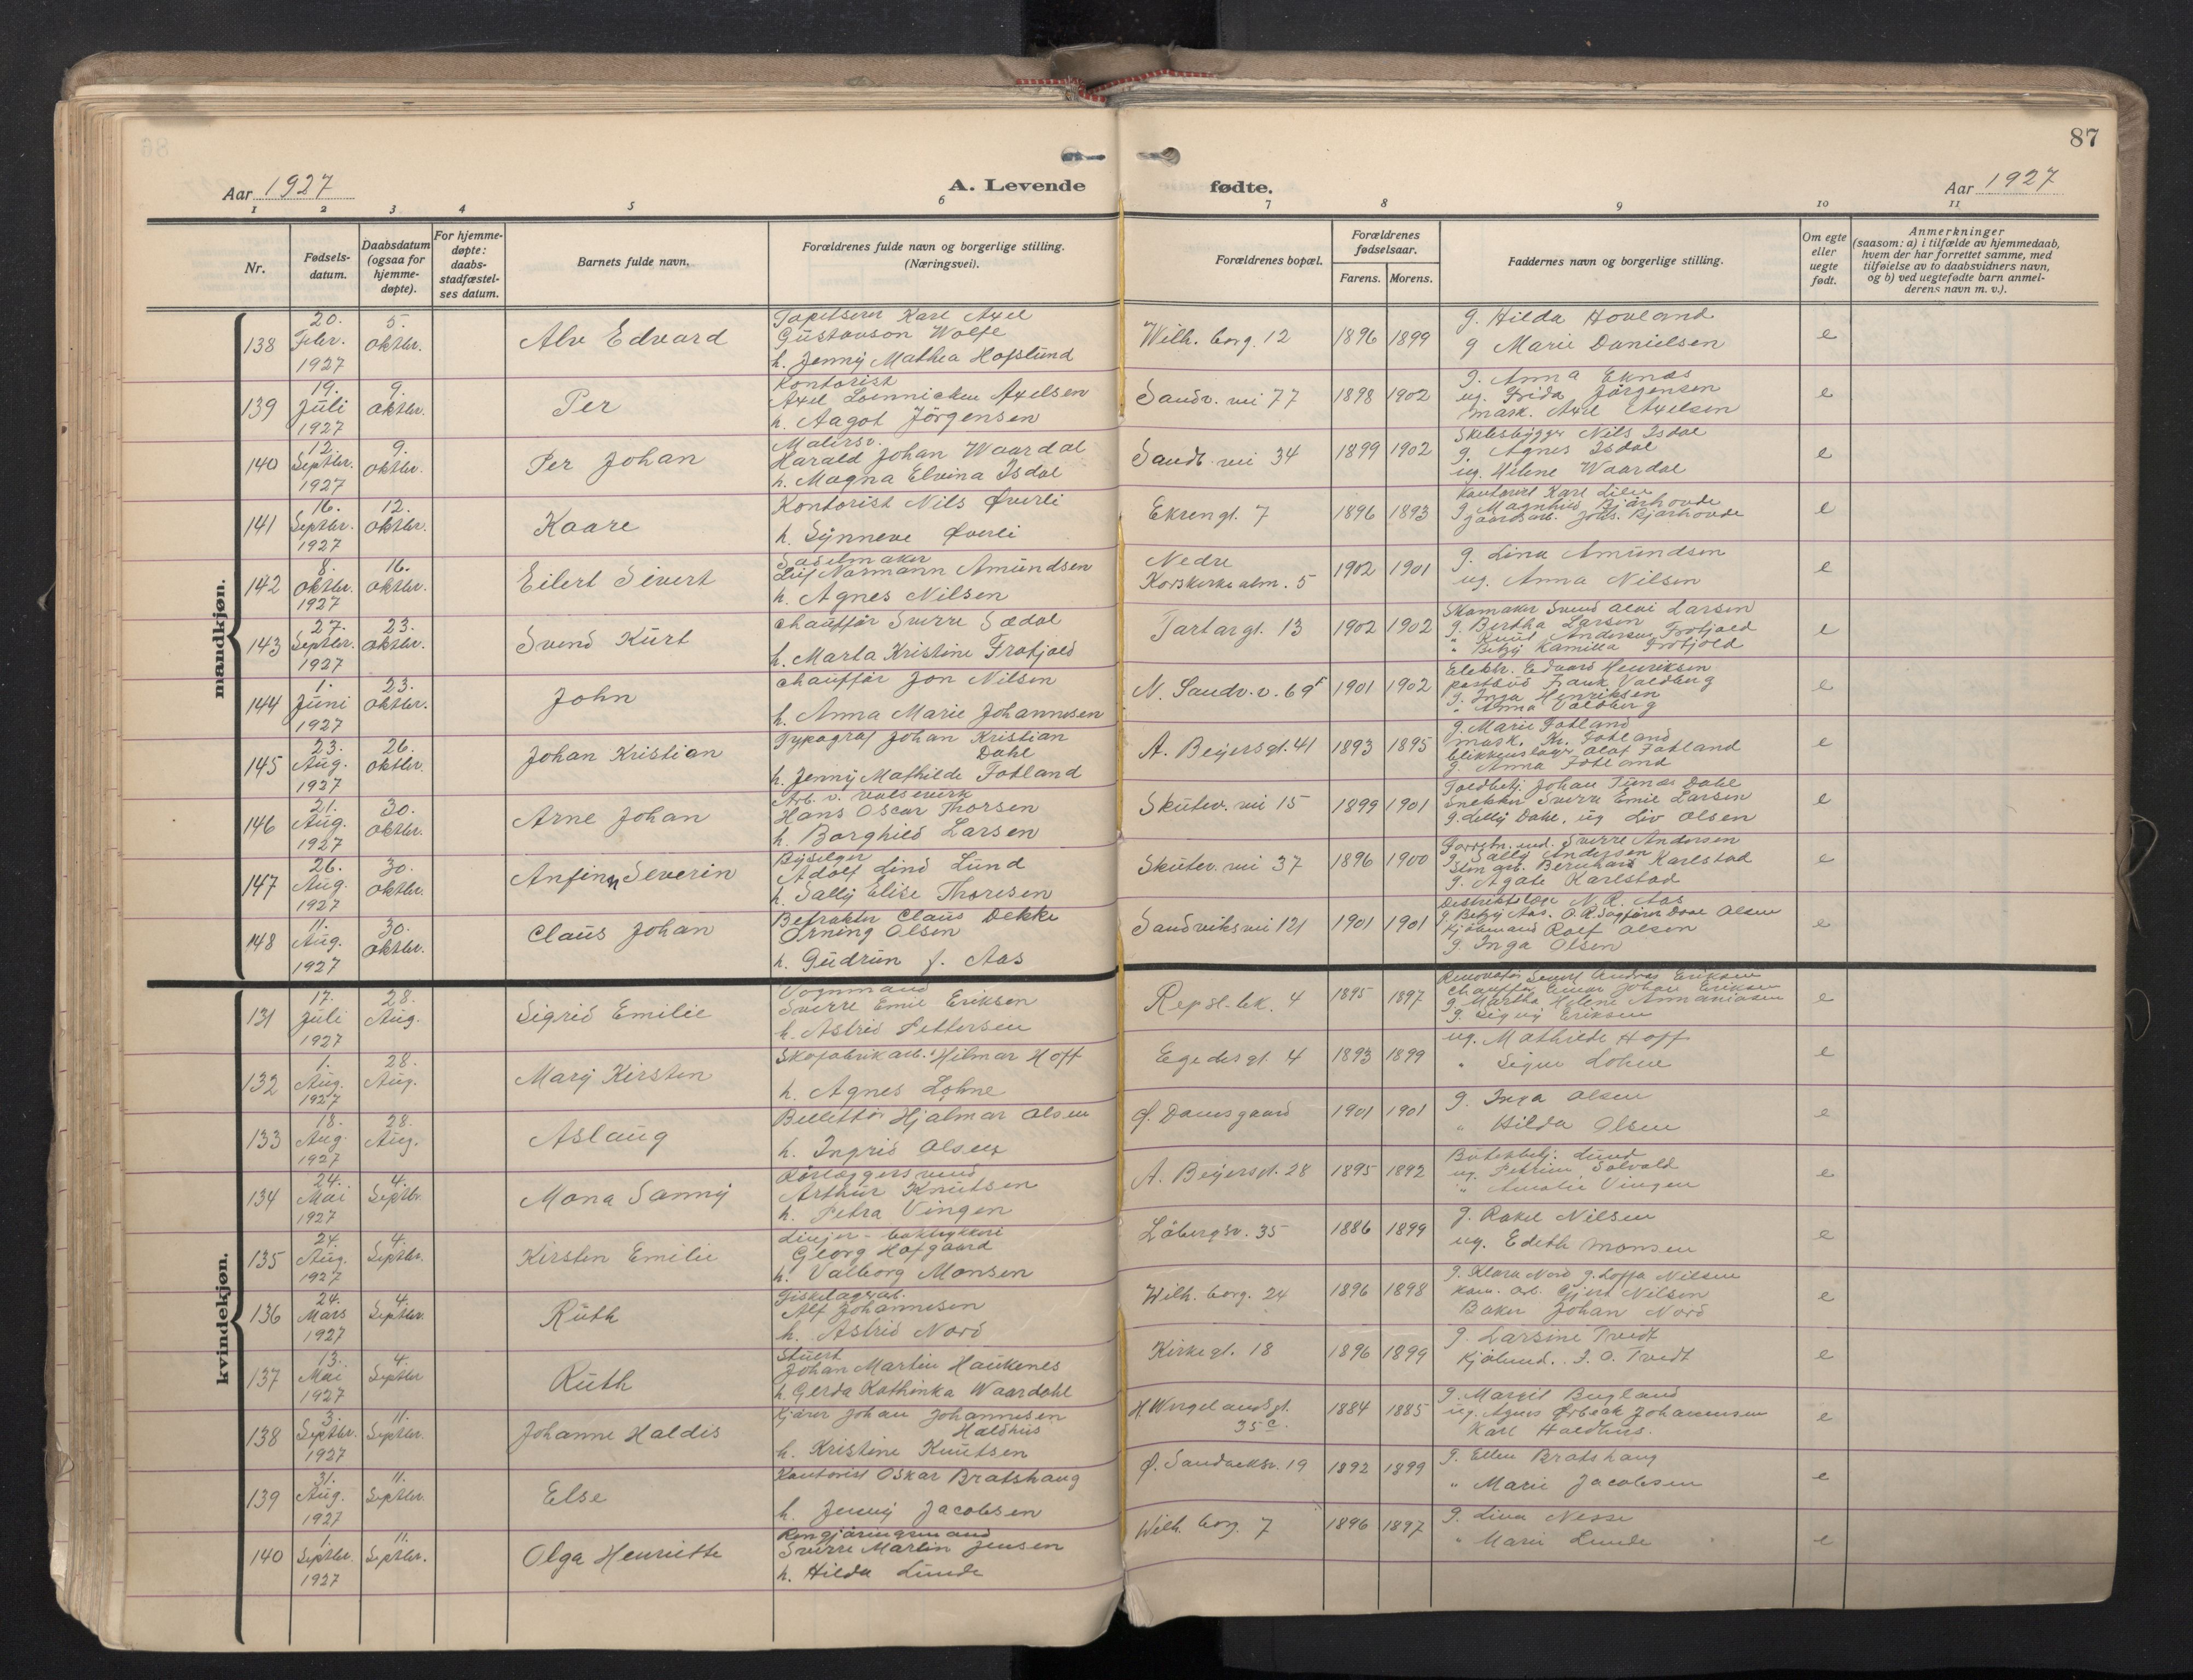 87
Aar 1927
A. Levende fødte.
Aar 1927
1 2 3 4 5 6 7 8 9 10 11
Nr.
Fødsels-datum.
Daabsdatum (ogsaa for hjemme-døpte).
For hjemme-døpte: daabs-stadfæstel-ses datum.
Barnets fulde navn.
Forældrenes fulde navn og borgerlige stilling. (Næringsvei).
Forældrenes bopæl.
Forældrenes fødselsaar.
Farens. Morens.
Faddernes navn og borgerlige stilling.
Om egte eller uegte født.
Anmerkninger
(saasom: a) i tilfælde av hjemmedaab,
hvem der har forrettet samme, med
tilføielse av to daabsvidners navn,
og b) ved uegtefødte barn anmel-
derens navn m. v.).
mandkjøn.
138 20. Febr. 1927 5. oktbr. Alv Edvard Tapetserer Karl Axel Gustavson Wolfe h. Jenny Mathea Hofslund Wilh. borg. 12 1896 1899 g. Hilda Hovland g Marie Danielsen e
139 19. Juli 1927 9. oktbr. Per Kontorist Axel Axelsen h. Aagot Jörgensen Sandv. vei 77 1898 1902 g. Anna Eknæs ug. Frida Jörgensen mask. Axel Axelsen e
140 12. Septbr. 1927 9. oktbr. Per Johan Malersv. Harald Johan Waardal h. Magna Elvina Isdal Sandv. vei 34 1899 1902 Skibsbygger Nils Isdal g. Agnes Isdal ug. Helene Waardal e
141 16. Septbr. 1927 12. oktbr. Kaare Kontorist Nils Øverli h. Synneve Øverli Ekrengt. 7 1896 1893 Kontorist Karl Lilev g. Magnhild Bjarhovde gaardsarb. Johs. Bjarhovde e
142 8. oktbr. 1927 16. oktbr. Eilert Sivert Sadelmaker Leif Normann Amundsen h. Agnes Nilsen Nedre Korskirke alm. 5 1902 1901 g. Lina Amundsen ug. Anna Nilsen e
143 27. Septbr. 1927 23. oktbr. Svend Kurt chauffør Sverre Sædal h. Marta Kristine Frotjold Tartargt. 13 1902 1902 Skomaker Svend Larsen g. Bertha Larsen " Knut Andersen Frotjold " Betzy Kamilla Frotjold e
144 1. Juni 1927 23. oktbr. John chauffør Jon Nilsen h. Anna Marie Johannesen N. Sandv. v. 69f 1901 1902 Elektr. Edvard Henriksen postbud Frank Valdberg g. Inga Henriksen " Anna Valdberg e
145 23. Aug. 1927 26. oktbr. Johan Kristian Typograf Johan Kristian Dahl h. Jenny Mathilde Fotland A. Beyersgt. 41 1893 1895 g. Marie Fotland mask. Kr. Fotland blikkenslager Olaf Fotland g Anna Fotland e
146 21. Aug. 1927 30. oktbr. Arne Johan Arb. v. valseverk Hans Oscar Thorsen h. Borghild Larsen Skutev. vei 15 1899 1901 Toldbetj. Johan Tunæs Dahl Snekker Sverre Emil Larsen g. Lelly Dahl, ug Liv Olsen e
147 26. Aug. 1927 30. oktbr. Anfinn Severin Byselger Adolf Lind Lund h. Sally Elise Thoresen Skutev. vei 37 1896 1900 Forretn. ind. Sverre Andersen g. Sally Andersen Sten arb. Bernhard Karlstad g. Agate Karlstad e
148 11. Aug. 1927 30. oktbr. Claus Johan Befrakter Claus Dekke Orning Olsen h. Gudrun f. Aas Sandviksvei 121 1901 1901 Distriktslæge N. R. Aas g. Betzy Aas. O. R. Sagfører Olsen kjøbmand Rolf Olsen g. Inga Olsen e
kvindekjøn.
131 17. Juli 1927 28. Aug. Sigrid Emilie Vognmand Sverre Emil Eriksen h. Astrid Pettersen Repsl. bk. 4 1895 1897 Renovatør Sevrl Andreas Eriksen Chauffør Einar Johan Eriksen g. Martha Helene Annaniasen g. Signy Eriksen e
132 1. Aug. 1927 28. Aug. Mary Kirsten Skofabrikarb. Hilmar Hoff h. Agnes Lohne Egedesgt. 4 1893 1899 ug. Mathilde Hoff " Signe Lohne e
133 18. Aug. 1927 28. Aug. Aslaug Billettør Hjalmar Olsen h. Ingrid Olsen Ø. Damsgaard 1901 1901 g. Inga Olsen " Hilda Olsen e
134 24. Mai 1927 4. Septbr. Mona Sanny Rørlæggersvend Arthur Knutsen h. Petra Vingen A. Beyersgt. 28 1895 1892 Butikbetj. Lund ug. Petrine Solvold " Amalie Vingen e
135 24. Aug. 1927 4. Septbr. Kirsten Emilie Linjer- boktrykkeri Georg Hofgaard h. Valborg Monsen Löbergsv. 35 1886 1899 g. Rakel Nilsen ug. Edith Monsen e
136 24. Mars 1927 4. Septbr. Ruth Fiskelagerarb. Alf Johannesen h. Astrid Nord Wilh. borg. 24 1896 1898 g. Klara Nord g. Loffa Nilsen kom. arb. Gjert Nilsen Baker Johan Nord e
137 13. Mai 1927 4. Septbr Ruth Stuert Johan Martin Haukenes h. Gerda Kathinka Waardahl Kirkegt. 18 1896 1899 g. Larsine Tvedt Kjøbmd. J. O. Tvedt e
138 3. Septbr. 1927 11. Septbr. Johanne Haldis Kjører Johan Johannesen Haldhus h. Kristine Knutsen H. Wergelandsgt. 35c 1884 1885 g. Margit Bugland ug. Agnes Ørbeck Johannesen Karl Haldhus. e
139 31. Aug. 1927 11. Septbr. Else Kontorist Oskar Bratshaug h. Jenny Jacobsen Ø. Sandviksv. 19 1892 1899 g. Ellen Bratshaug " Marie Jacobsen e
140 1. Septbr. 1927 11. Septbr. Olga Henriette Rengjøringsmand Sverre Martin Jensen h. Hilda Lunde Wilh. borg. 7 1896 1897 g. Lina Nesse " Marie Lunde e